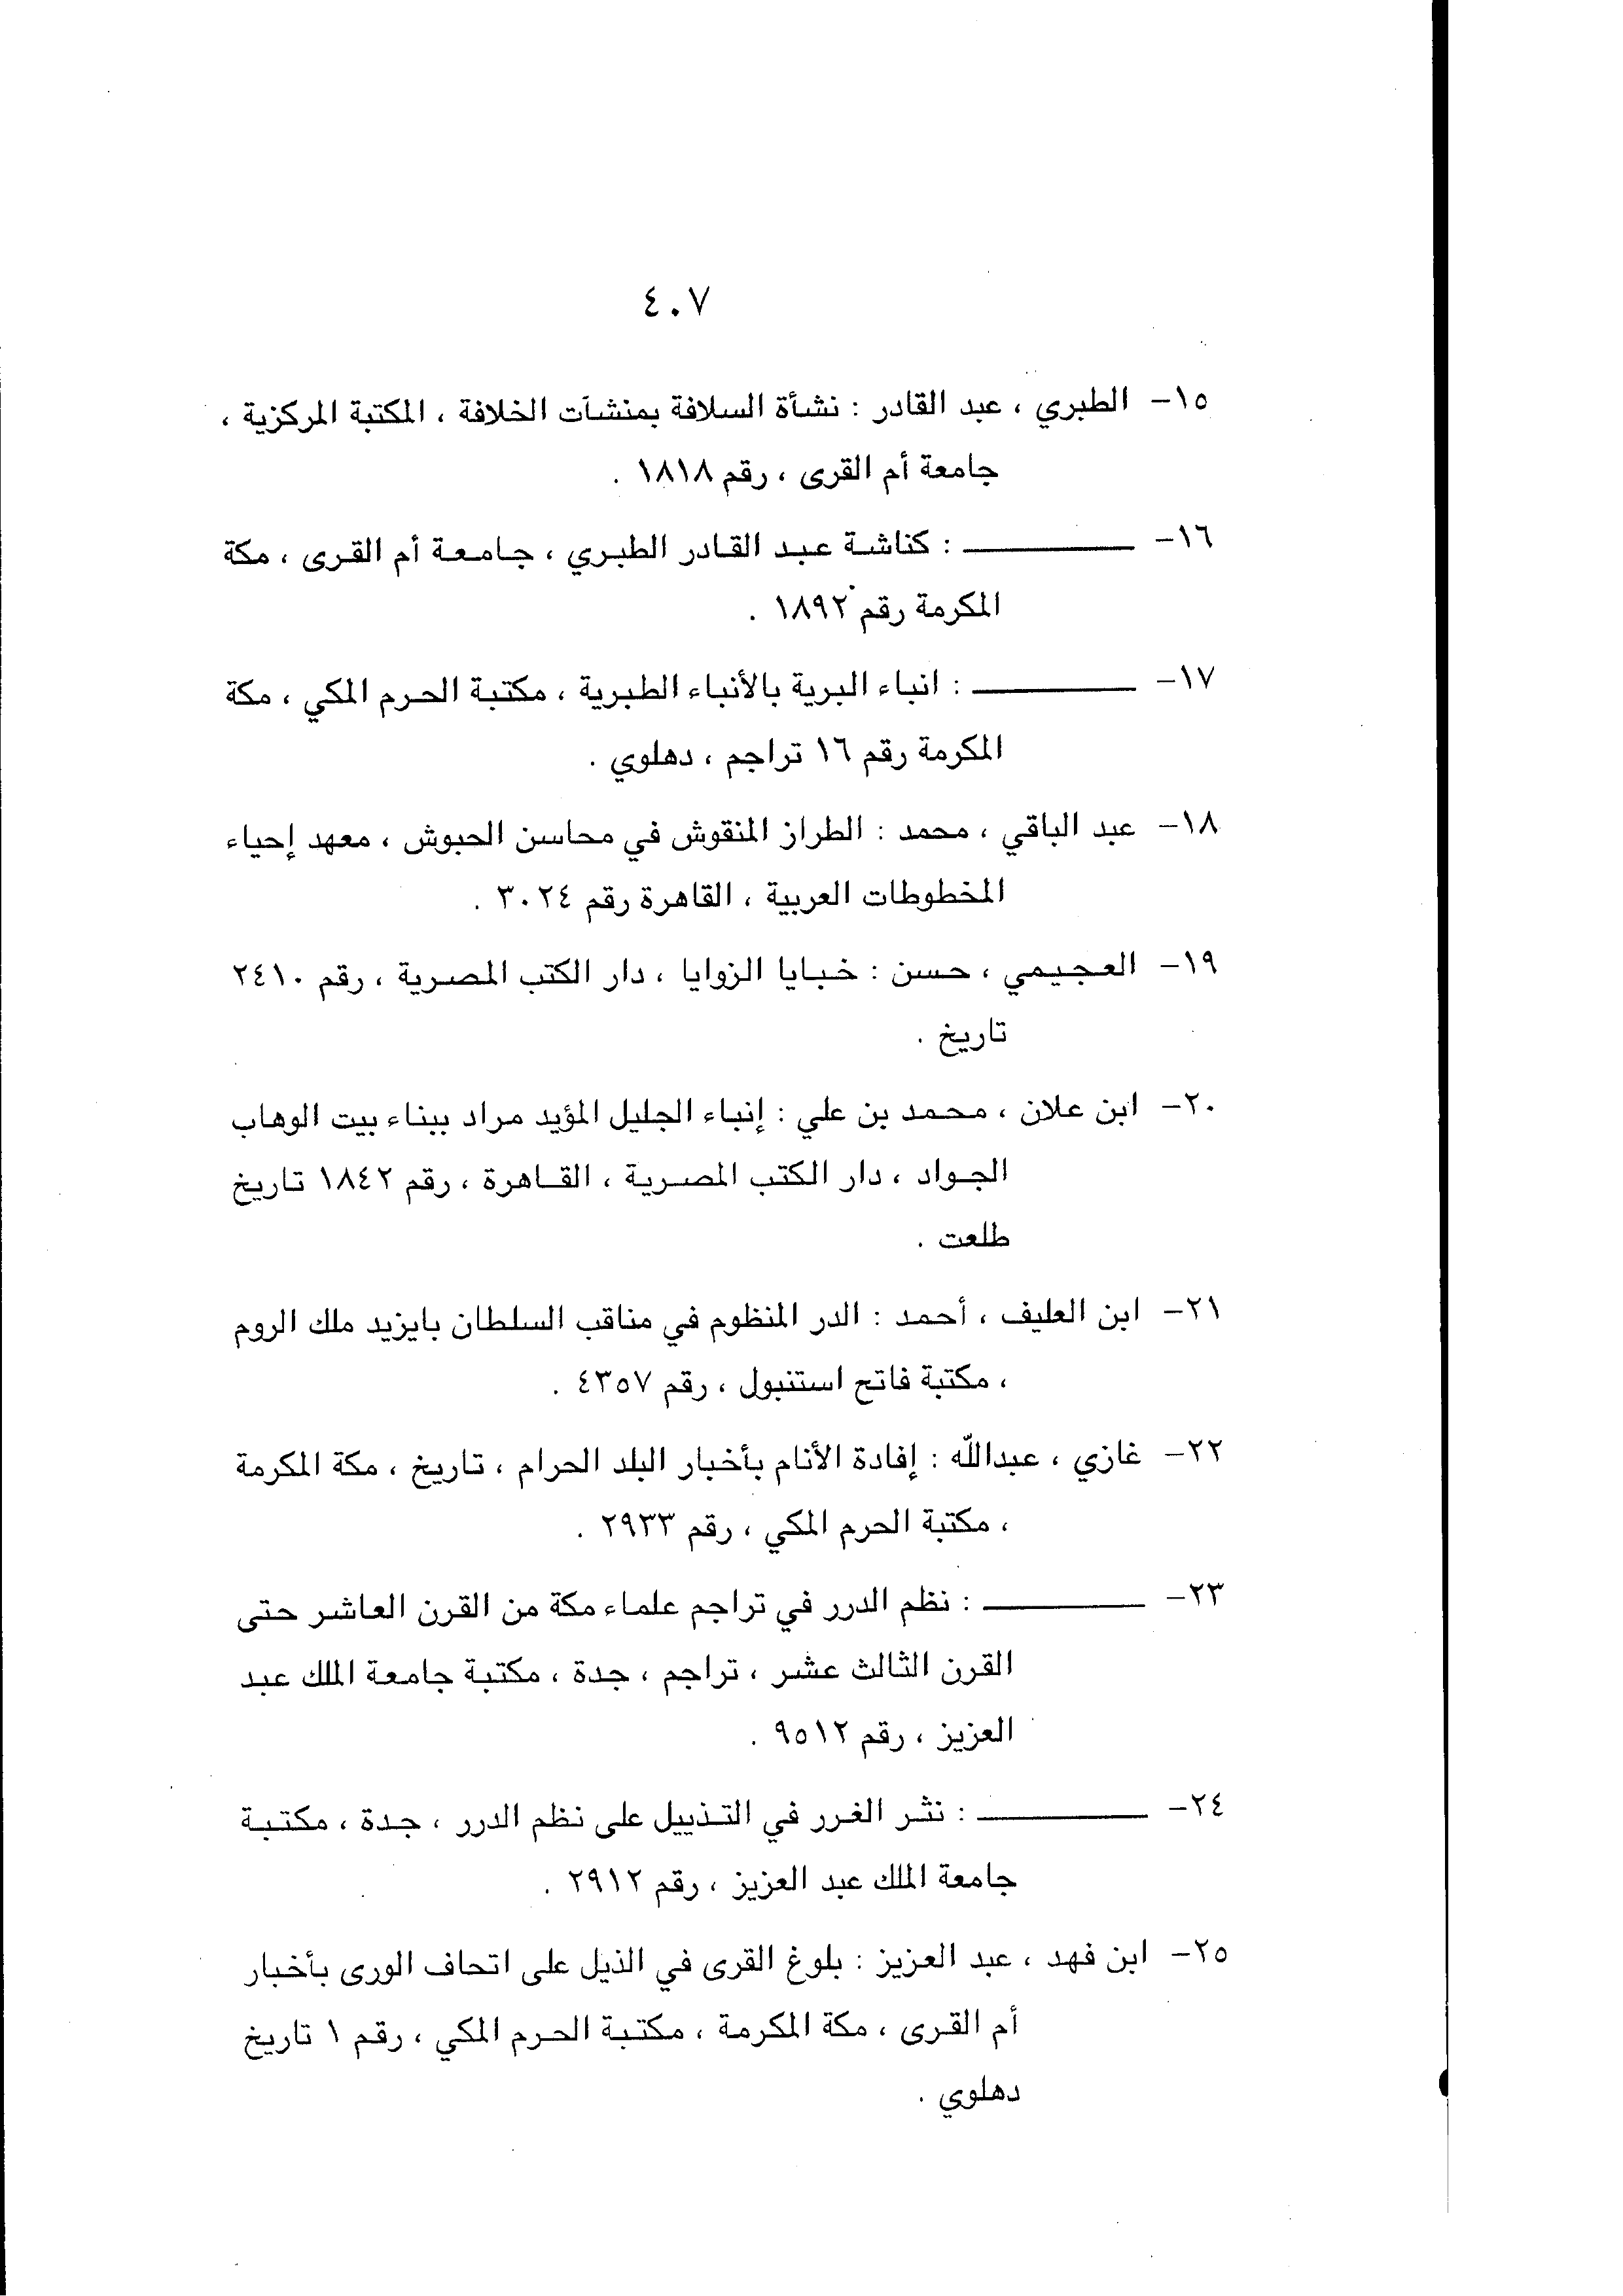 ٤٠٧
١٥- الطبري ، عبد القادر : نشأة السلافة بمنشآت الخلافة ، المكتبة المركزية ،
جامعة أم القرى ، رقم ١٨١٨ .
١٦- ـــــــــــــ : كناشة عبد القادر الطبري ، جامعة أم القرى ، مكة
المكرمة رقم ١٨٩٢ .
١٧- ـــــــــــــ : انباء البرية بالأنباء الطبرية ، مكتبة الحرم المكي ، مكة
المكرمة رقم ١٦ تراجم ، دهلوي .
١٨- عبد الباقي ، محمد : الطراز المنقوش في محاسن الحبوش ، معهد إحياء
المخطوطات العربية ، القاهرة رقم ٣٠٢٤ .
١٩- العجيمي ، حسن : خبايا الزوايا ، دار الكتب المصرية ، رقم ٢٤١٠
تاريخ .
٢٠- ابن علان ، محمد بن علي : إنباء الجليل المؤيد مراد ببناء بيت الوهاب
الجواد ، دار الكتب المصرية ، القاهرة ، رقم ١٨٤٢ تاريخ
طلعت .
٢١- ابن العليف ، أحمد : الدر المنظوم في مناقب السلطان بايزيد ملك الروم
، مكتبة فاتح استنبول ، رقم ٤٣٥٧ .
٢٢- غازي ، عبدالله : إفادة الأنام بأخبار البلد الحرام ، تاريخ ، مكة المكرمة
، مكتبة الحرم المكي ، رقم ٢٩٣٣ .
٢٣- ـــــــــــــ : نظم الدرر في تراجم علماء مكة من القرن العاشر حتى
القرن الثالث عشر ، تراجم ، جدة ، مكتبة جامعة الملك عبد
العزيز ، رقم ٩٥١٢ .
٢٤- ـــــــــــــ : نثر الغرر في التذييل على نظم الدرر ، جدة ، مكتبة
جامعة الملك عبد العزيز ، رقم ٢٩١٢ .
٢٥- ابن فهد ، عبد العزيز : بلوغ القرى في الذيل على اتحاف الورى بأخبار
أم القرى ، مكة المكرمة ، مكتبة الحرم المكي ، رقم ١ تاريخ
دهلوي .